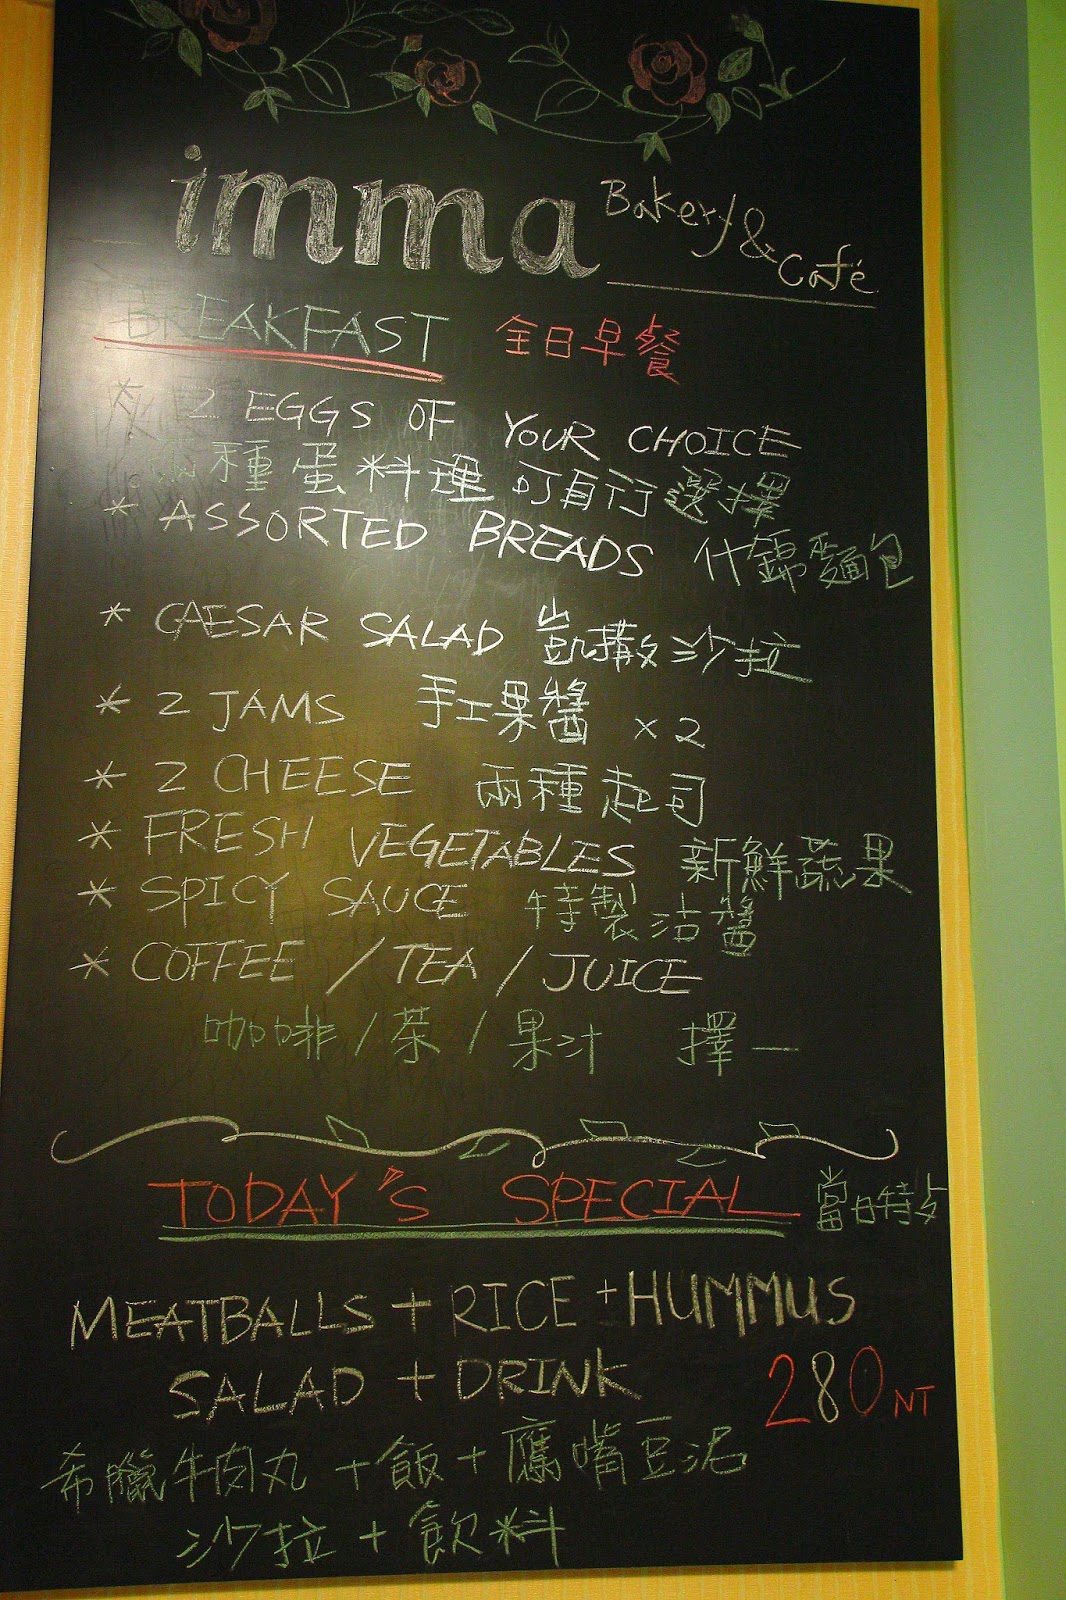 imma Bakery & Café
BREAKFAST 全日早餐
* 2 EGGS OF YOUR CHOICE
兩種蛋料理可自行選擇
* ASSORTED BREADS 什錦麵包
* CAESAR SALAD 凱撒沙拉
* 2 JAMS 手工果醬 x2
* 2 CHEESE 兩種起司
* FRESH VEGETABLES 新鮮蔬果
* SPICY SAUCE 特製沾醬
* COFFEE / TEA / JUICE
咖啡 / 茶 / 果汁 擇一
TODAY'S SPECIAL 當日特占
MEATBALLS + RICE + HUMMUS
SALAD + DRINK 280 NT
希臘牛肉丸 + 飯 + 鷹嘴豆泥
沙拉 + 飲料